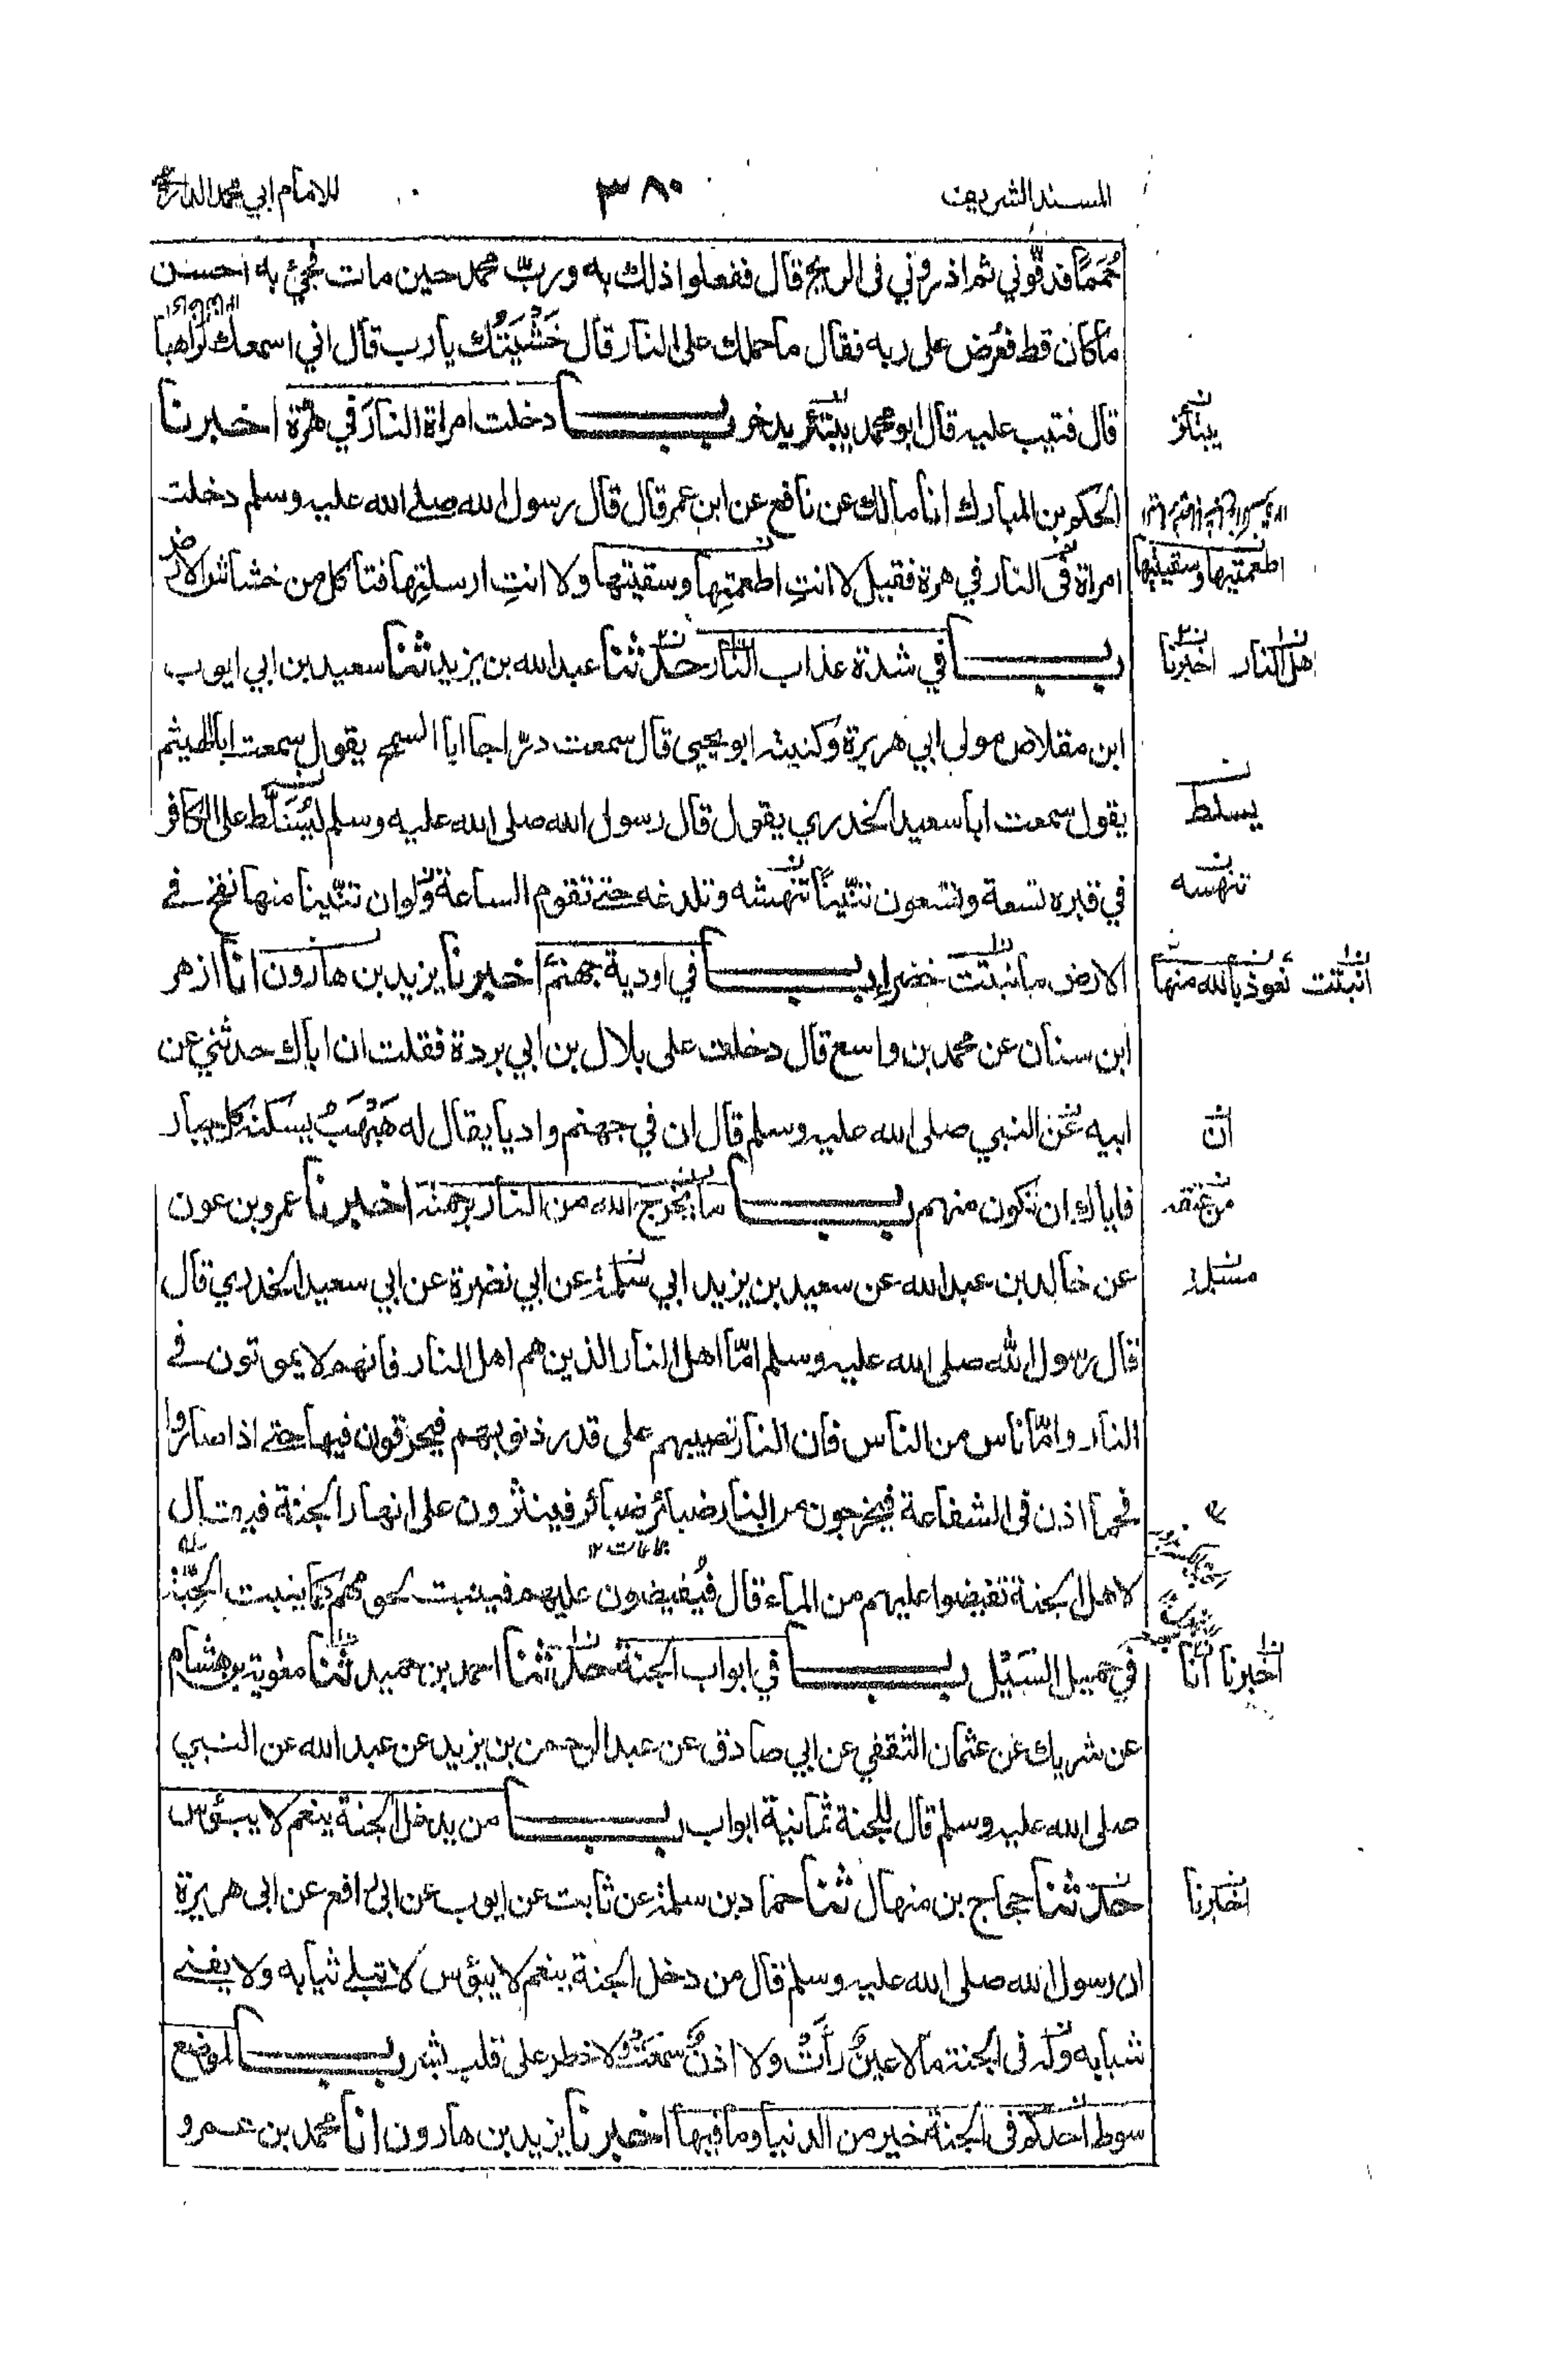 المسند الشريف ٣٨٠ للامام ابي محمد الدارمي
حُمَمًا فدقّوني ثم اذروني فى الريح قال ففعلوا ذلك به ورب محمد حين مات فجئ به احسن
ما كان قط فعُرض على ربه فقال ما حملك على النار قال خَشْيَتُك يا رب قال اني اسمعك لراهبا
قال فتيب عليه قال ابو محمد يبتئر يدخر بـــاب دخلت امراة النار في هرة اخبرنا
يبتئر
الحكم بن المبارك انا مالك عن نافع عن ابن عمر قال قال رسول الله صلے الله عليه وسلم دخلت
امراة فى النار في هرة فقيل لا انتِ اطعمتِها وسقيتها ولا انتِ ارسلتِها فتأكل من خشاش الارض
اطعمتيها وسقيتيها
بـــاب في شدة عذاب النار حدثنا عبد الله بن يزيد ثنا سعيد بن ابي ايوب
اهل النار اخبرنا
ابن مقلاص مولى ابي هريرة وكنيته ابو يحيى قال سمعت درّاجا ابا السمح يقول سمعت ابا الهيثم
يقول سمعت ابا سعيد الخدري يقول قال رسول الله صلى الله عليه وسلم ليُسَلَّط على الكافر
يسلط
في قبره تسعة وتسعون تنّينًا تنهشه وتلدغه حتے تقوم الساعة ولو ان تنّينا منها نفخ فے
تنهسه
الارض ما نبتت خضراء بـــاب في اودية جهنم اخبرنا يزيد بن هارون انا ازهر
انبتت نعوذ بالله منها
ابن سنان عن محمد بن واسع قال دخلت على بلال بن ابي بردة فقلت ان اباك حدثني عن
ابيه عن النبي صلى الله عليه وسلم قال ان في جهنم واديا يقال له هَبْهَبُ يسكنه كل جبار
ان
فاياك ان تكون منهم بـــاب ما يخرج الله من النار برحمته اخبرنا عمرو بن عون
عن خالد بن عبد الله عن سعيد بن يزيد ابي سلمة عن ابي نضرة عن ابي سعيد الخدري قال
قال رسول الله صلى الله عليه وسلم امّا اهل النار الذين هم اهل النار فانهم لا يموتون فے
النار وامّا ناس من الناس فان النار تصيبهم على قدر ذنوبهم فيحرقون فيها حتے اذا صاروا
فحما اذن فى الشفاعة فيخرجون من النار ضبائر ضبائر فينثرون على انهار الجنة فيقال
لاهل الجنة تفيضوا عليهم من الماء قال فيُفيضون عليهم فينبت لحومهم كما ينبت الحِبّة
جماعات ١٢
في حميل السَيْل بـــاب في ابواب الجنة حدثنا احمد بن حميد ثنا معوية بن هشام
اخبرنا انا
عن شريك عن عثمان الثقفي عن ابي صادق عن عبد الرحمن بن يزيد عن عبد الله عن النبي
صلى الله عليه وسلم قال للجنة ثمانية ابواب بـــاب من يدخل الجنة ينعم لا يبؤس
حدثنا حجاج بن منهال ثنا حماد بن سلمة عن ثابت عن ايوب عن ابى رافع عن ابى هريرة
اخبرنا
ان رسول الله صلى الله عليه وسلم قال من دخل الجنة ينعم لا يبؤس لا تبلے ثيابه ولا يفنے
شبابه وله فى الجنة ما لا عينٌ رأَتْ ولا اذنٌ سمعَتْ ولا خطر على قلب بشر بـــاب لموضع
سوط احدكم فى الجنة خير من الدنيا وما فيها اخبرنا يزيد بن هارون انا محمد بن عمرو